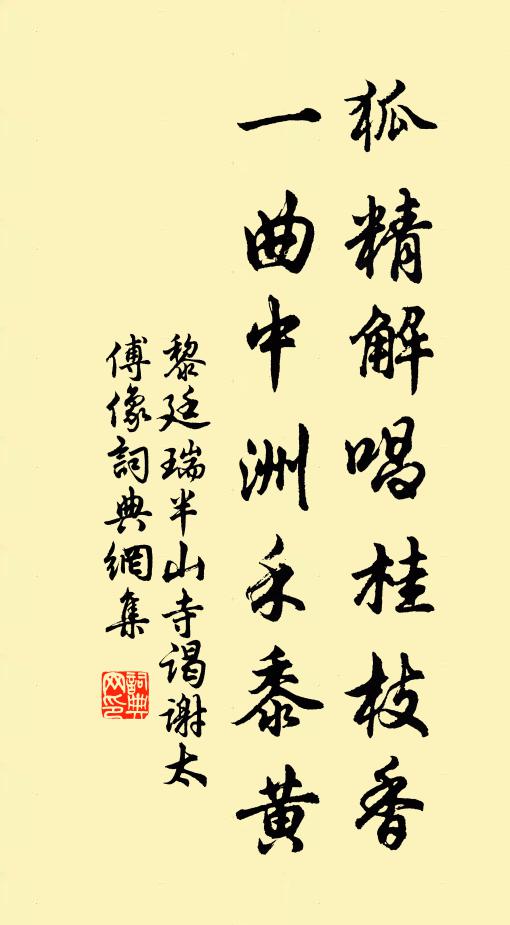 狐精解唱桂枝香
一曲中洲禾黍黄
黎廷瑞半山寺謁謝太
傅像詞典網集
詞典
网印